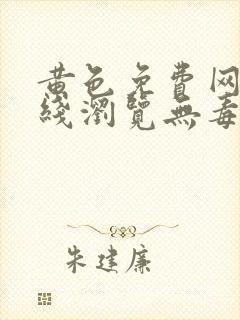 黄色免费网
綫瀏覽無毒
朱建廉